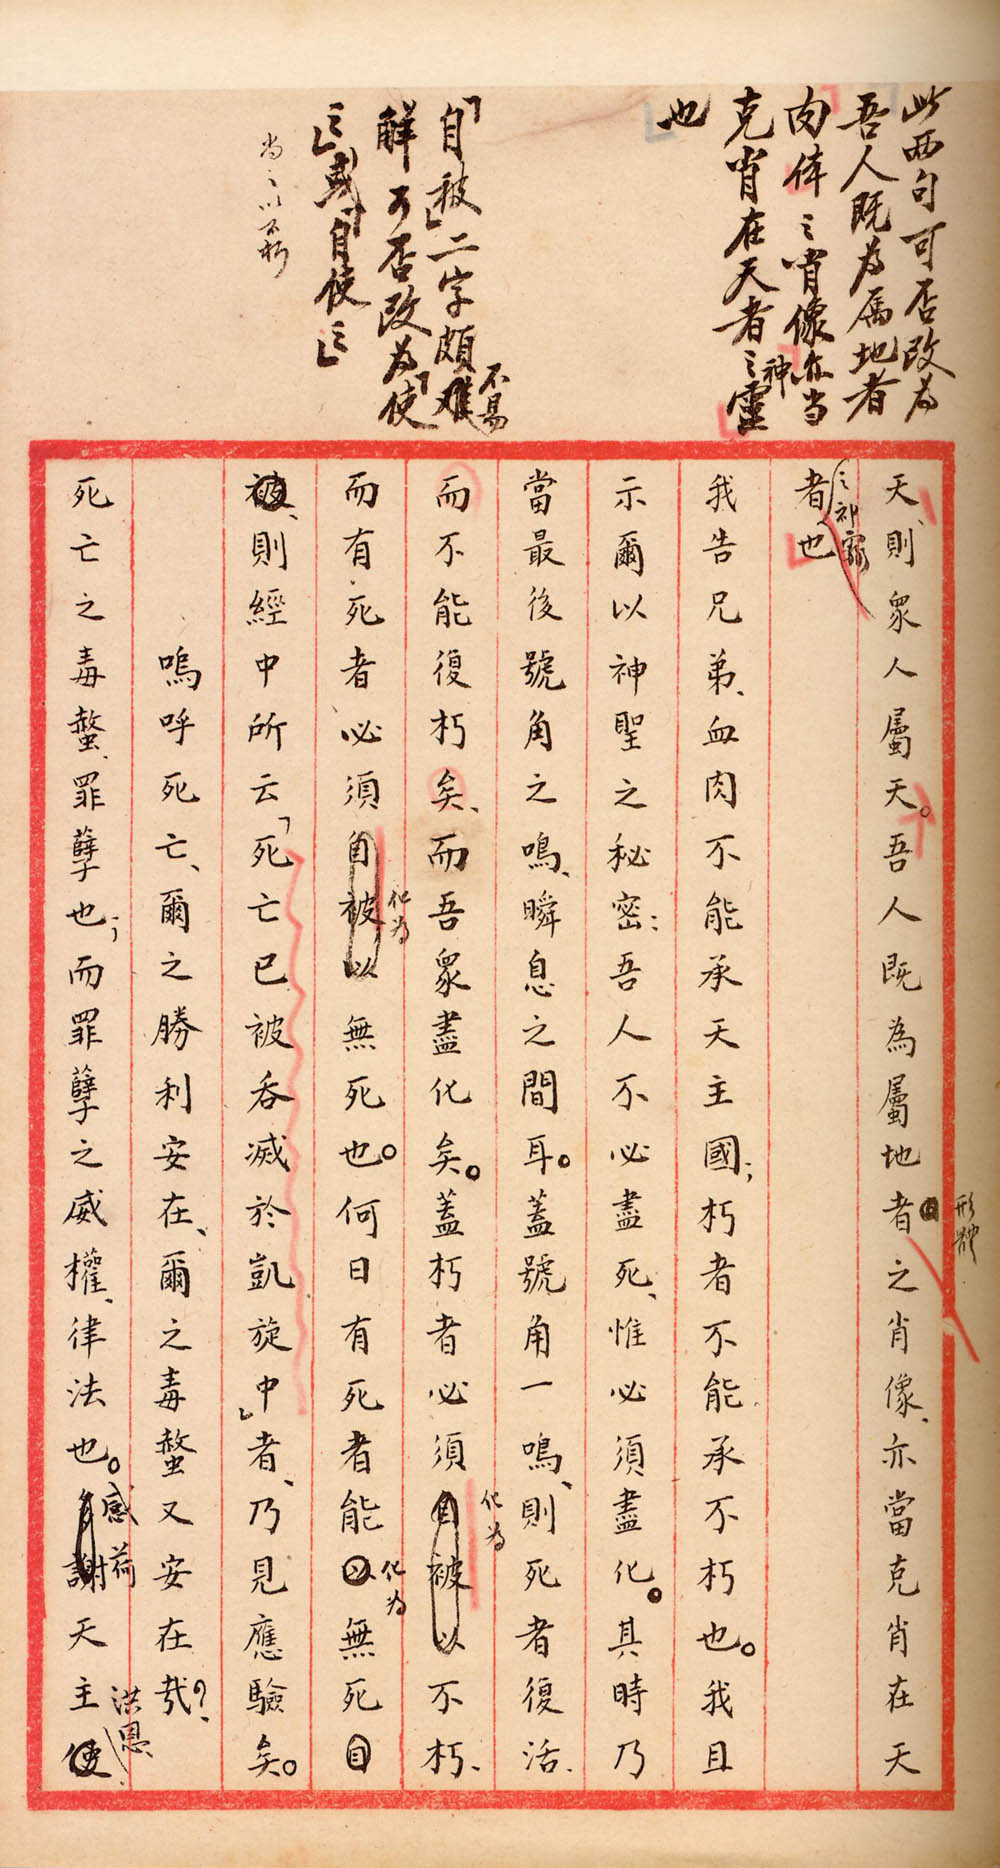 此兩句可否改為
吾人既為属地者
肉体之肖像亦当
克肖在天者之神靈
也
「自被」二字頗不易
解可否改為「使
之」或「自使之」
天、則眾人屬天。吾人既為屬地者之肖像、亦當克肖在天
形體
者也
之神靈
我告兄弟、血肉不能承天主國；朽者不能承不朽也。我且
示爾以神聖之秘密：吾人不必盡死、惟必須盡化。其時乃
當最後號角之鳴、瞬息之間耳。蓋號角一鳴、則死者復活、
而不能復朽矣、而吾眾盡化矣。蓋朽者必須自被以不朽、
化為
而有死者必須自被以無死也。何日有死者能以無死自
化為
化為
被、則經中所云「死亡已被吞滅於凱旋中」者、乃見應驗矣。
嗚呼死亡、爾之勝利安在、爾之毒螫又安在哉？
死亡之毒螫、罪孽也；而罪孽之威權、律法也。謝天主使
感荷
洪恩